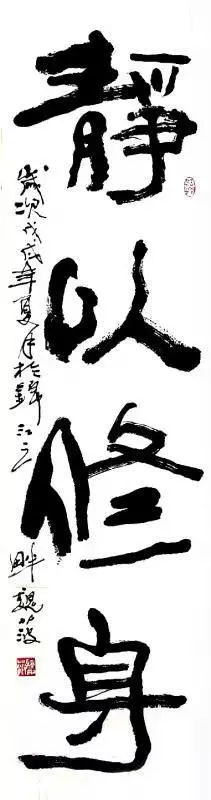 靜以修身
歲次戊戌年夏月於錦江之畔 魏菠